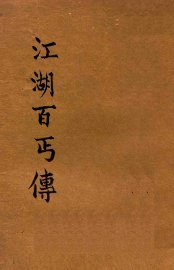 江湖百丐傳